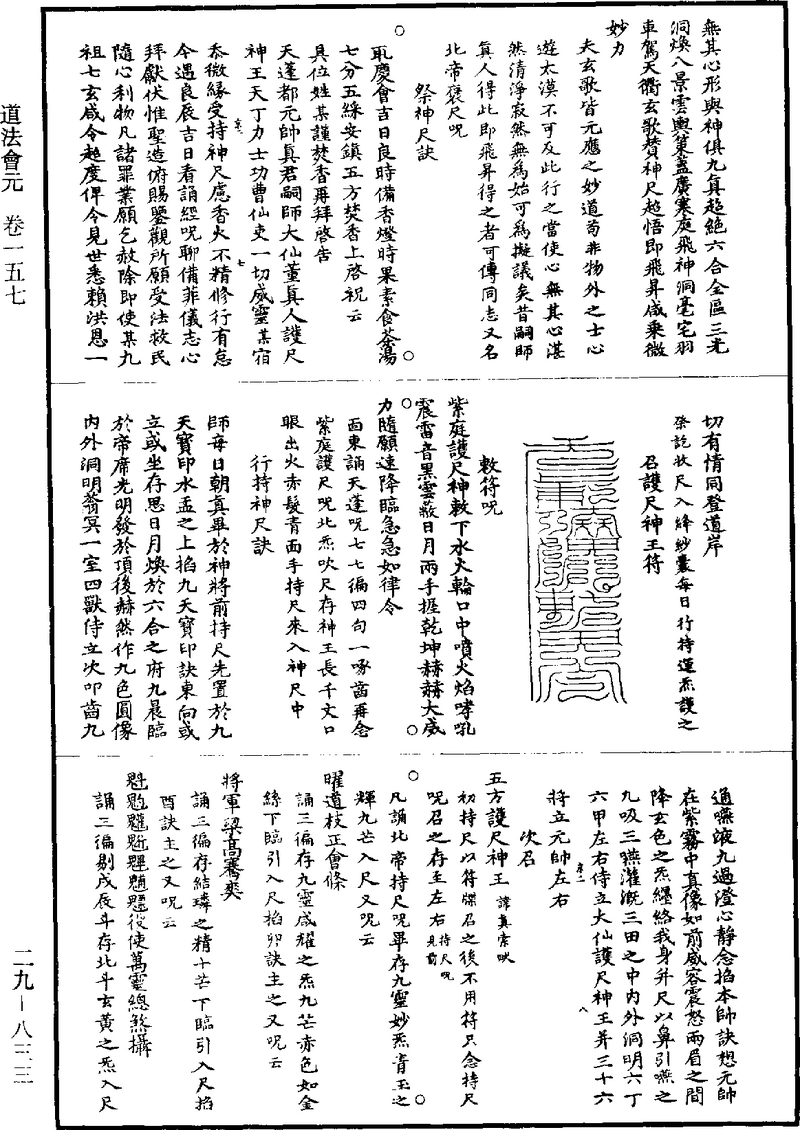 道法會元　卷一五七
無其心形與神俱九真超絕六合全區三光
洞煥八景雲輿策蓋廣寒庭飛神洞毫宅羽
車駕天衢玄歌贊神尺超悟即飛昇咸乘微
妙力
夫玄歌皆元應之妙道苟非物外之士心
遊太漠不可及此行之當使心無其心湛
然清淨寂然無為始可為擬議矣昔嗣師
真人得此即飛昇得之者可傳同志又名
北帝褒尺呪
祭神尺訣
取慶會吉日良時備香燈時果素食茶湯
七分五綵安鎮五方焚香上啓祝云
具位姓某謹焚香再拜啓告
天蓬都元帥真君嗣師大仙董真人護尺
神王天丁力士功曹仙吏一切威靈某宿
忝微緣受持神尺慮香火不精修行有怠
今遇良辰吉日看誦經呪聊備菲儀志心
拜獻伏惟聖造俯賜鑒觀所願受法救民
隨心利物凡諸罪業願乞赦除即使某九
祖七玄咸令超度俾今見世悉賴洪恩一
切有情同登道岸
祭訖收尺入絳紗囊每日行持運炁護之
召護尺神王符
敕符呪
紫庭護尺神敕下水火輪口中噴火焰哮吼
震雷音黑雲蔽日月兩手握乾坤赫赫大威
力隨願速降臨急急如律令
面東誦天蓬呪七七徧四句一啄齒再念
紫庭護尺呪北炁吹尺存神王長千丈口
眼出火赤髮青面手持尺來入神尺中
行持神尺訣
師每日朝真畢於神將前持尺先置於九
天寶印水盂之上掐九天寶印訣東向或
立或坐存思日月煥於六合之府九晨臨
於帝席光明發於頂後赫然作九色圓像
內外洞明蓊冥一室四獸侍立次叩齒九
通嚥液九過澄心靜念掐本帥訣想元帥
在紫霧中真像如前威容震怒兩眉之間
降玄色之炁纏絡我身并尺以鼻引嚥之
九吸三嚥灌溉三田之中內外洞明六丁
六甲左右侍立大仙護尺神王并三十六
將立元帥左右
次召
五方護尺神王
初持尺以符牒召之後不用符只念持尺
呪召之存至左右
凡誦北帝持尺呪畢存九靈妙炁青玉之
輝九芒入尺又呪云
曜道枝正會條
誦三徧存九靈咸耀之炁九芒赤色如金
絲下臨引入尺掐卯訣主之又呪云
將軍梁高騫奕
誦三徧存結璘之精十芒下臨引入尺掐
酉訣主之又呪云
役使萬靈總煞攝
誦三徧剔戌辰斗存北斗玄黃之炁入尺
二九－八三三